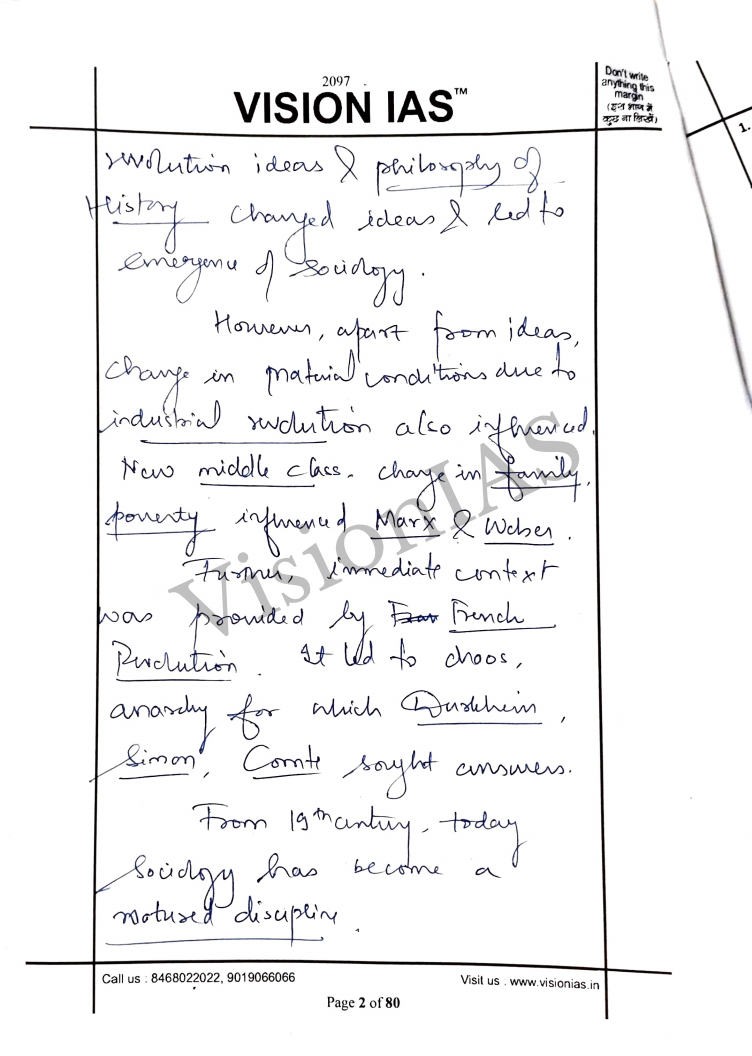 2097
VISION IAS™
Don't write
anything this
margin
(इस भाग में
कुछ ना लिखें)
1.
revolution ideas & philosophy of
History changed ideas & led to
emergence of Sociology.
However, apart from ideas,
change in material conditions due to
industrial revolution also influenced.
New middle class. change in family,
poverty influenced Marx & Weber.
Further, immediate context
was provided by French
Revolution. It led to chaos,
anarchy for which Durkheim,
Simon, Comte sought answers.
From 19th century, today
Sociology has become a
matured discipline.
VisionIAS
Call us : 8468022022, 9019066066
Visit us . www.visionias.in
Page 2 of 80